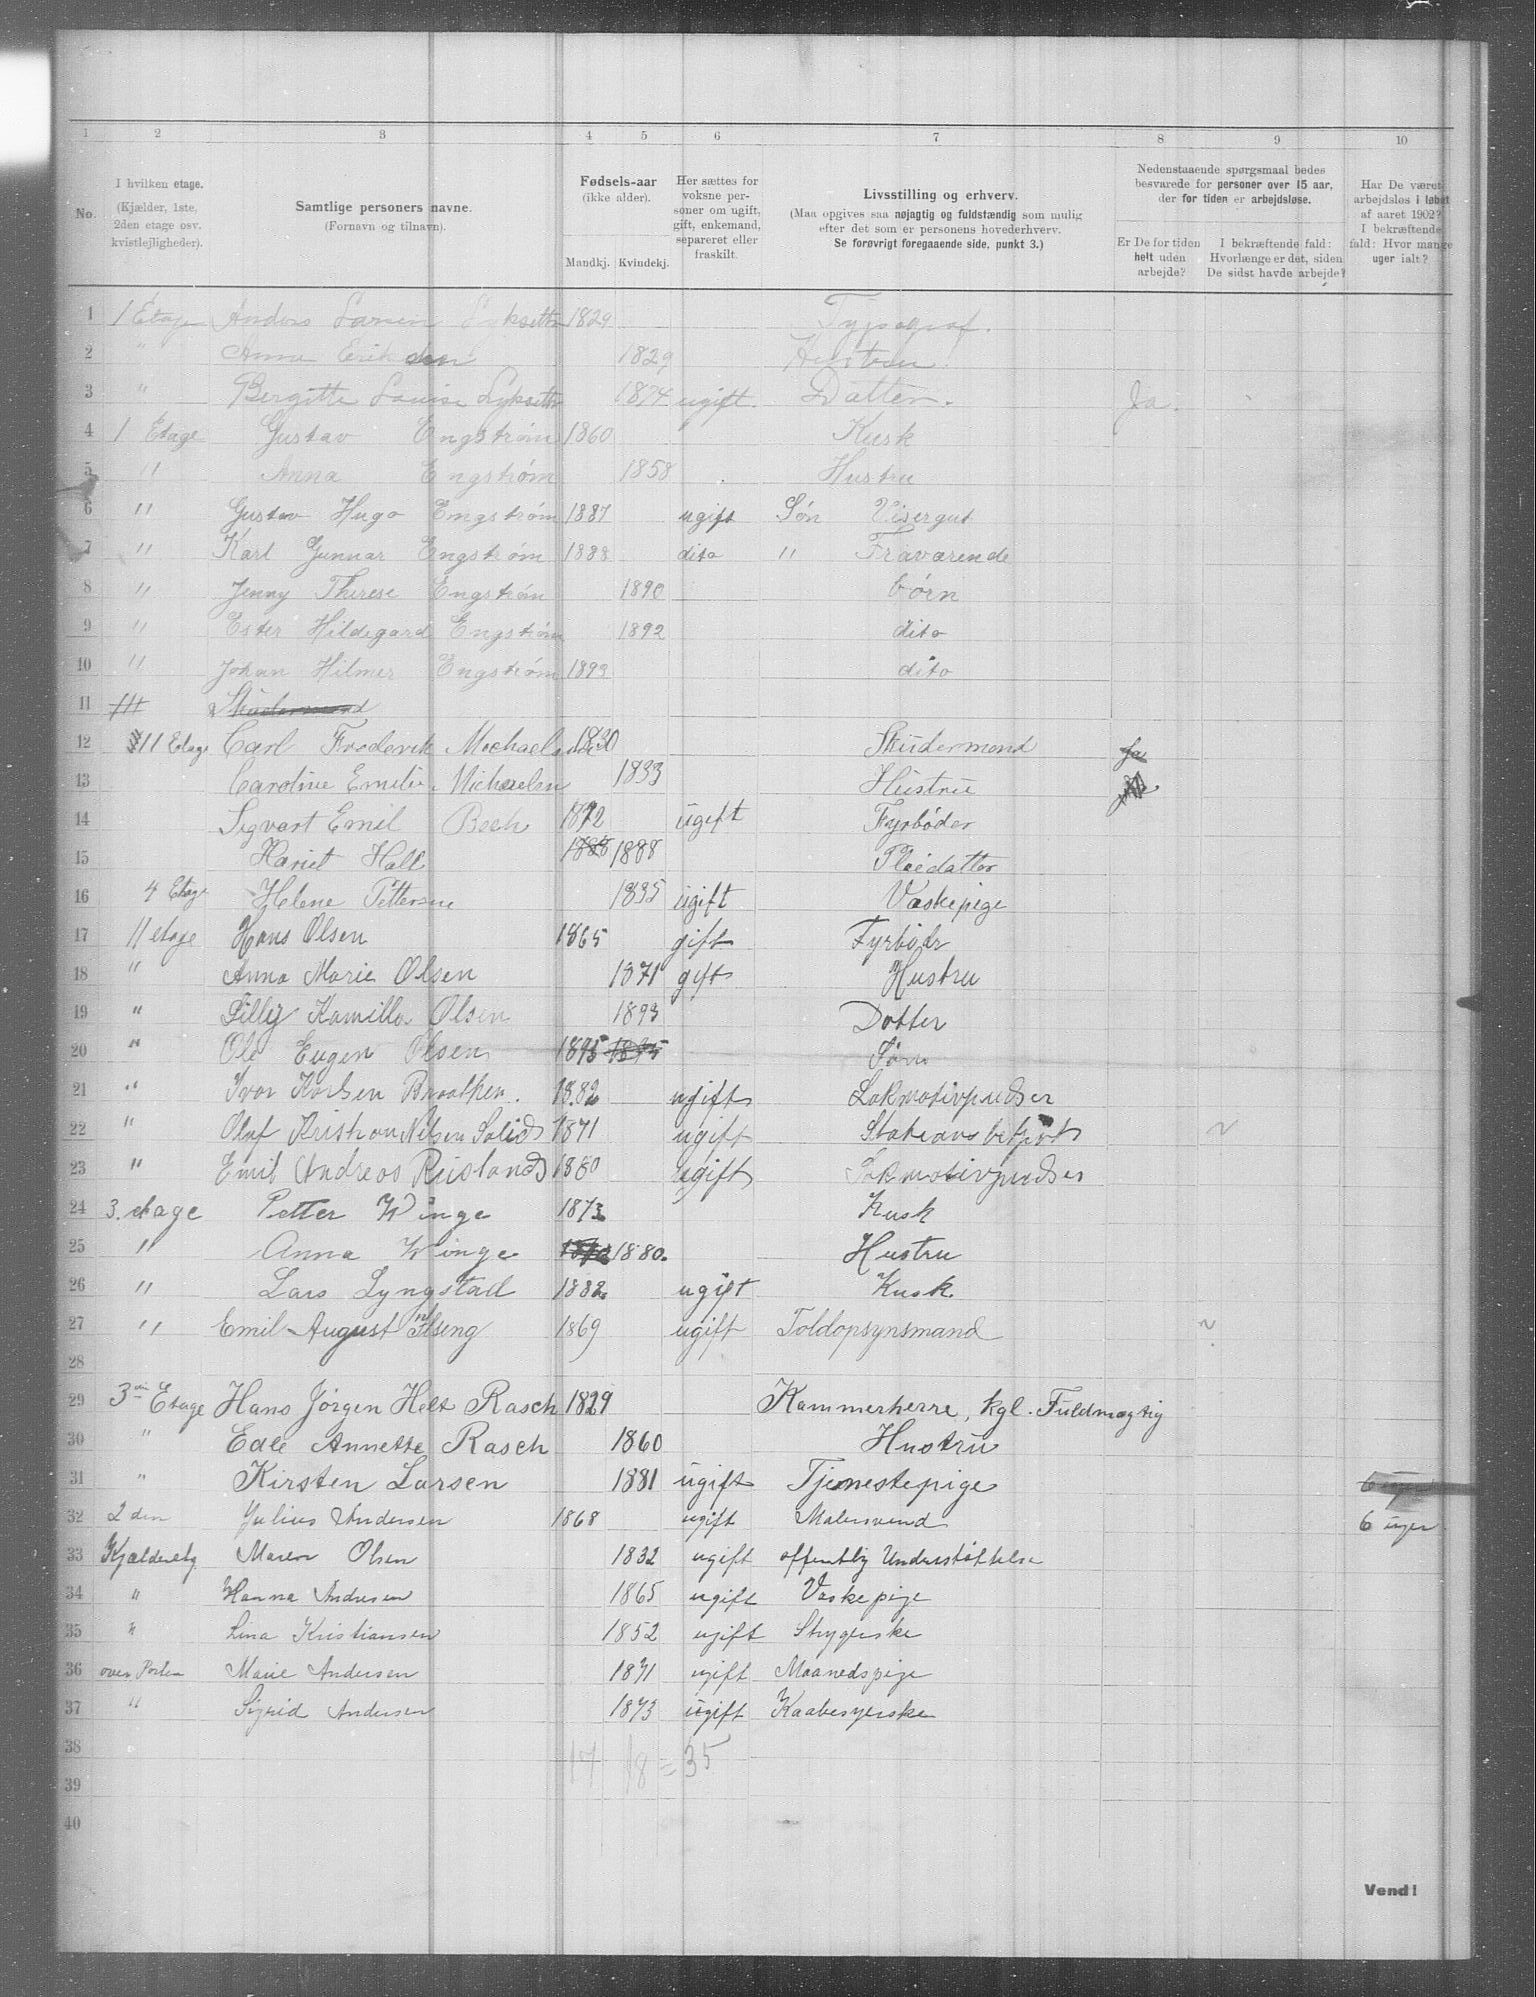 1 2 3 4 5 6 7 8 9 10
No. I hvilken etage. (Kjælder, 1ste, 2den etage osv. kvistlejligheder). Samtlige personers navne. (Fornavn og tilnavn). Fødsels-aar (ikke alder). Mandkj. Kvindekj. Her sættes for voksne personer om ugift, gift, enkemand, separeret eller fraskilt. Livsstilling og erhverv. (Maa opgives saa nøjagtig og fuldstændig som mulig efter det som er personens hovederhverv. Se forøvrigt foregaaende side, punkt 3.) Nedenstaaende spørgsmaal bedes besvarede for personer over 15 aar, der for tiden er arbejdsløse. Er De for tiden helt uden arbejde? I bekræftende fald: Hvorlænge er det, siden De sidst havde arbejde? Har De været arbejdsløs i løbet af aaret 1902? I bekræftende fald: Hvor mange uger ialt?
1 1 Etage Anders Larsen 1829 Typograf.
2 " Anna Eriksden 1829 Hustru
3 " Bergitte Louise Lyksett 1874 ugift. Datter. Ja.
4 1 Etage Gustav Engstrøm 1860 Kusk
5 " Anna Engstrøm 1858 Hustru
6 " Gustav Hugo Engstrøm 1887 ugift Søn Visergut
7 " Karl Gunnar Engstrøm 1888 dito " Fraværende
8 " Jenny Therese Engstrøm 1890 børn
9 " Ester Hildegard Engstrøm 1892 dito
10 " Johan Hilmer Engstrøm 1893 dito
11
12 11 Etage Carl Frederik Michaelsen 1830 Skudermand Ja
13 Caroline Emilie Michaelsen 1833 Hustru
14 Sigvart Emil Bech 1872 ugift Fyrbøder
15 Hariet Hall 1888 1888 Pleiedatter
16 4 Etage Helene Pettersne 1835 ugift Vaskepige
17 11 etage Hans Olsen 1865 gift Fyrbødr
18 " Anna Marie Olsen 1871 gift Hustru
19 " Lilly Kamilla Olsen 1893 Dotter
20 " Ole Eugen Olsen 1895 1895 Søn
21 " Ivar Karlsen Braathen. 1882 ugift Lokmotivpudser
22 " Olaf Kristian Nilsen 1871 ugift Stations betjent
23 " Emil Andreas Rusland 1880 ugift Lokmotivpudser
24 3. etage Petter Winge 1873 Kusk
25 " Anna Winge 1880. Hustru
26 " Lars Lyngstad 1882 ugift Kusk
27 " Emil August 1869 ugift Toldopsynsmand
28
29 3die Etage Hans Jørgen Holt Rasch 1829 Kammerherre, kgl. Fuldmægtig
30 " Edle Annette Rasch 1860 Hustru
31 " Kirsten Larsen 1881 ugift Tjenestepige 6 uger
32 2 den Julius Andersen 1868 ugift Malersvend 6 uger
33 Kjælderetg Maren Olsen 1832 ugift offentlig Understøttelse
34 " Hanna Andresen 1865 ugift Vaskepige
35 " Lina Kristiansen 1852 ugift Strygerske
36 over Porten Marie Andersen 1871 ugift Maanedspige
37 " Sigrid Andersen 1873 ugift Kaabesyerske
38 17 18 = 35
39
40
Vend!